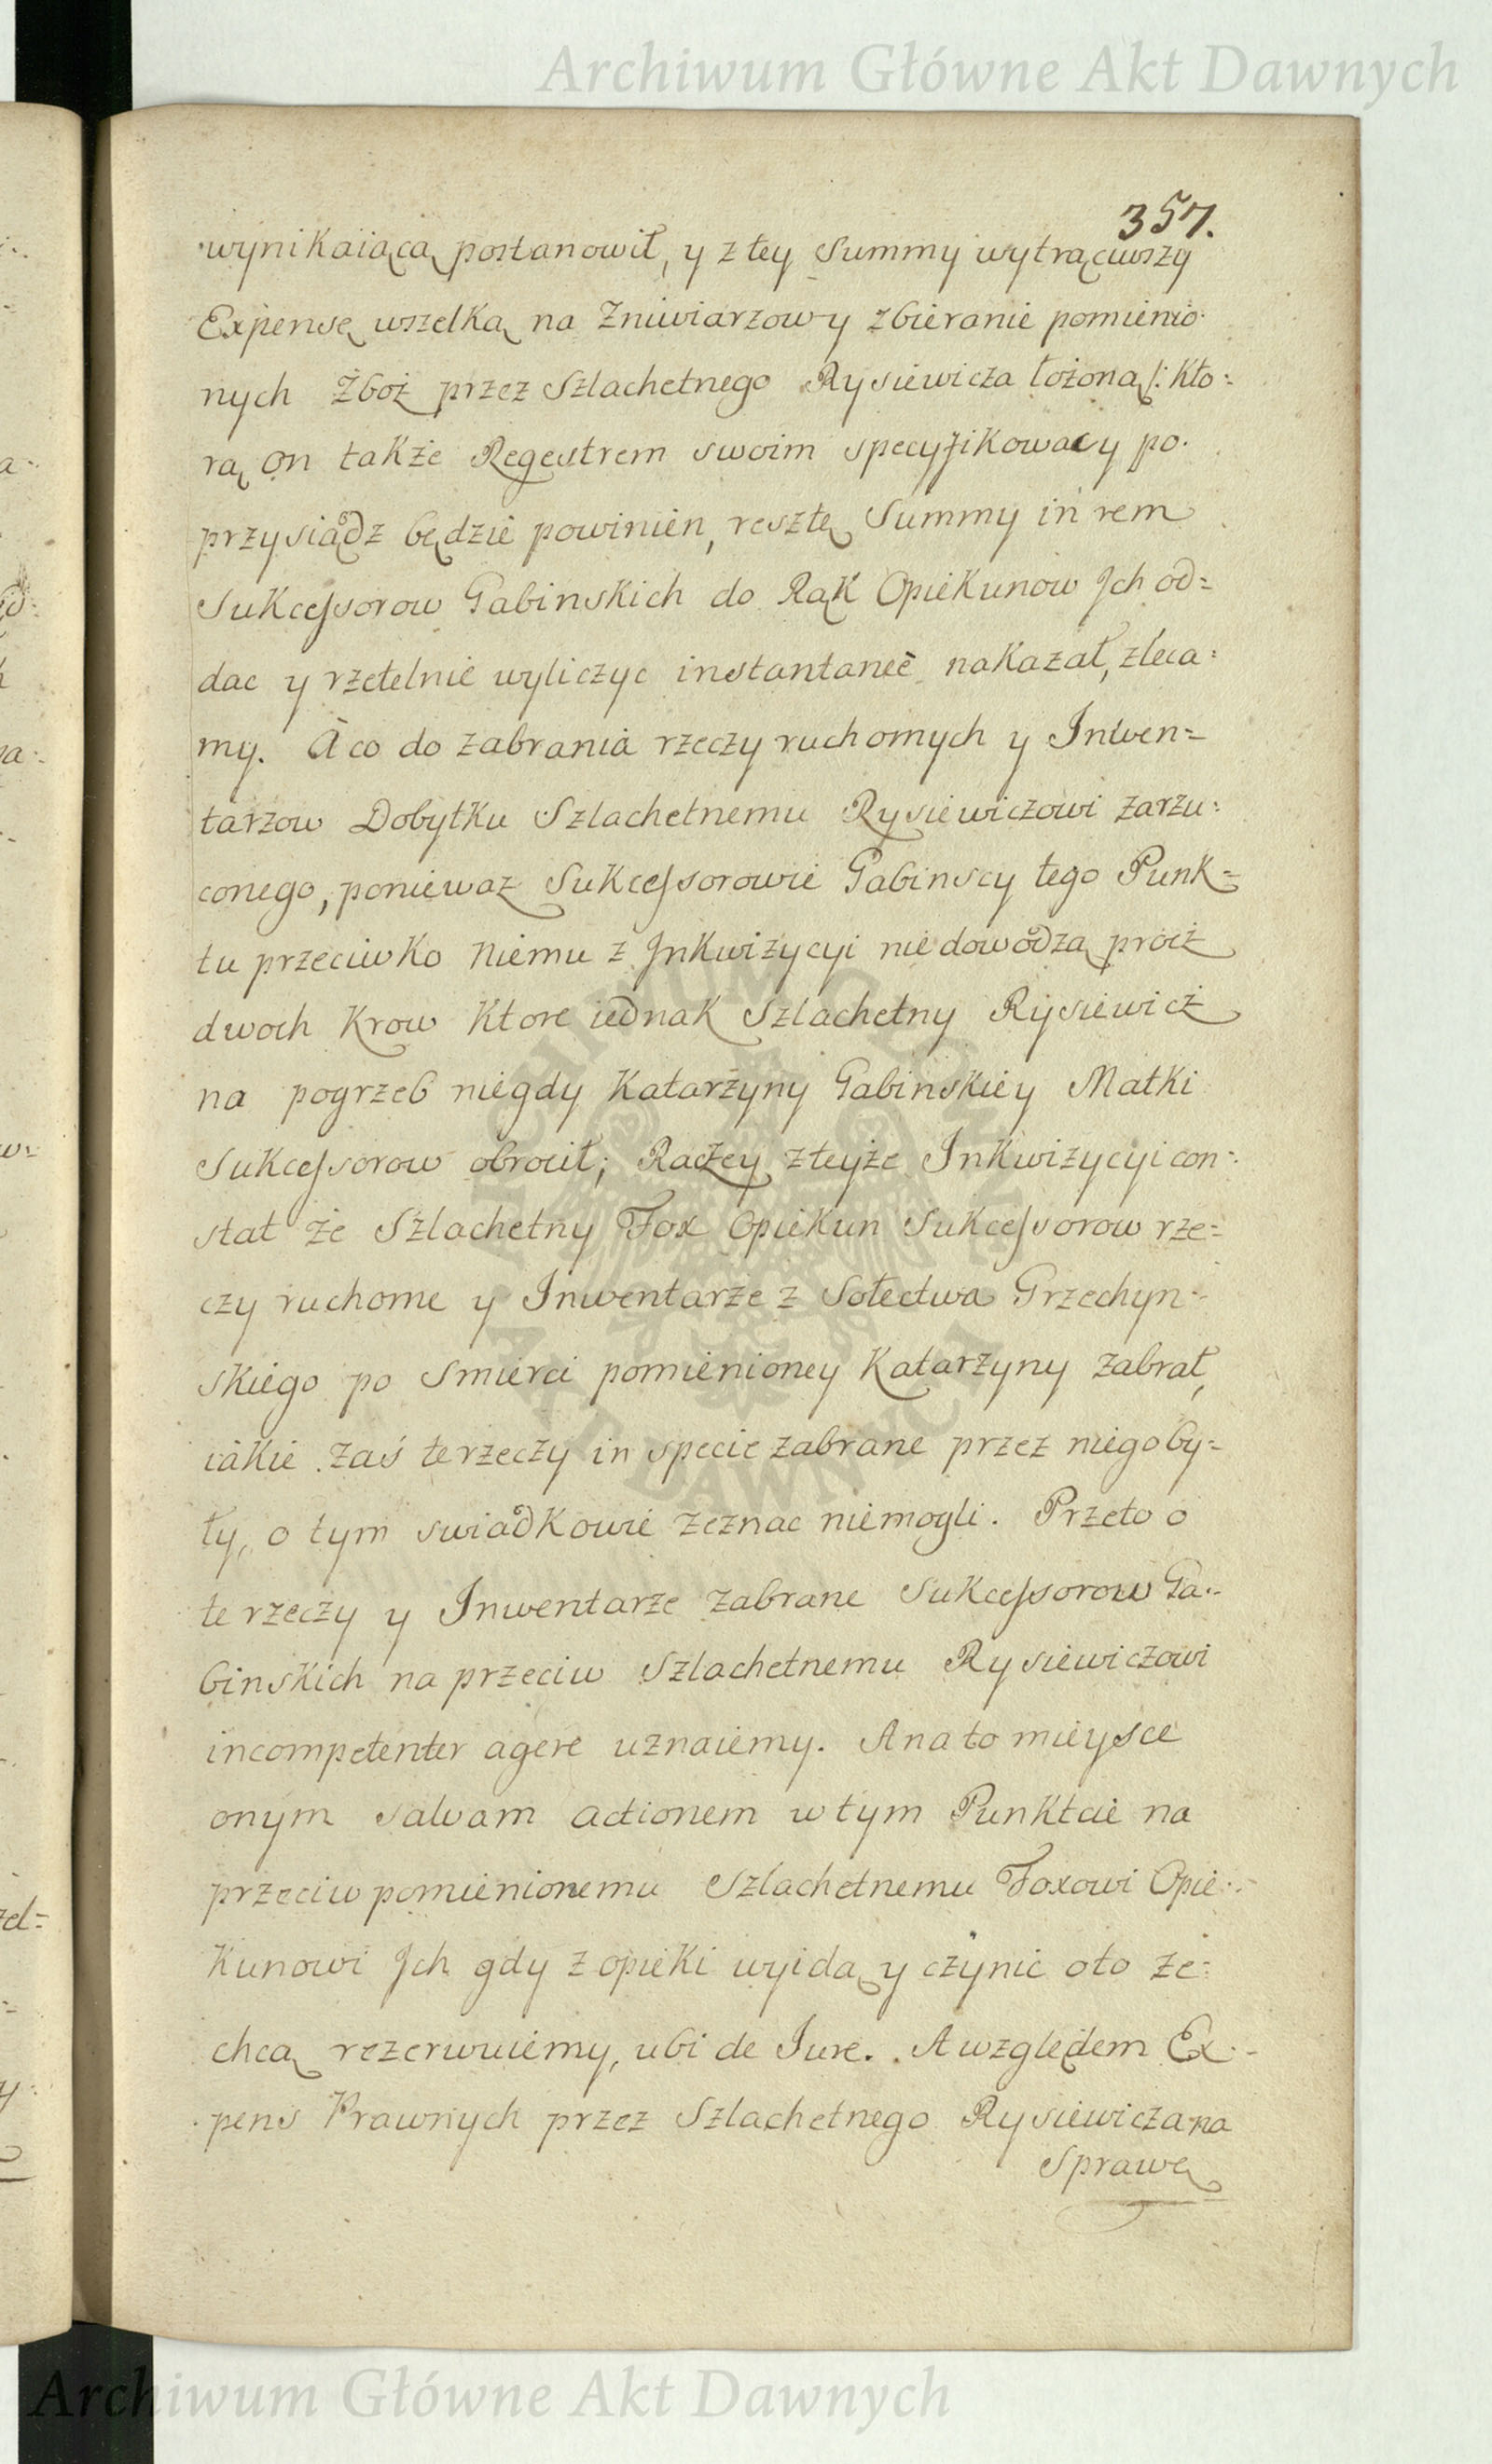 Archiwum Główne Akt Dawnych
357.
wynikaiącą postanowił, y z tey Summy wytrąciwszy
Expensę wszelką na Zniwiarzow y zbieranie pomienio-
nych Zboż przez Szlachetnego Rysiewicza łożoną /: kto=
rą on także Regestrem swoim specyfikowac y po-
przysiądz będzie powinien, resztę Summy in rem
Sukcessorow Gabinskich do Rąk Opiekunow Ich od=
dac y rzetelnie wyliczyc instantaneè nakazał, zleca=
my. A co do zabrania rzeczy ruchomych y Inwen=
tarzow Dobytku Szlachetnemu Rysiewiczowi zarzu=
conego, poniewaz Sukcessorowie Gabinscy tego Punk=
tu przeciwko Niemu z Inkwizycyi nie dowodzą procz
dwoch Krow Ktore iednak Szlachetny Rysiewicz
na pogrzeb niegdy Katarzyny Gabinskiey Matki
Sukcessorow obrocił; Raczey z teyże Inkwizycyi con=
stat że Szlachetny Fox Opiekun Sukcessorow rze=
czy ruchome y Inwentarze z Sołectwa Grzechyn=
skiego po Smierci pomienioney Katarzyny zabrał,
iakie zaś te rzeczy in specie zabrane przez niego by=
ły, o tym swiadkowie zeznac niemogli. Przeto o
te rzeczy y Inwentarze zabrane Sukcessorow Ga=
binskich na przeciw Szlachetnemu Rysiewiczowi
incompetenter agere uznaiemy. A na to mieysce
onym salvam actionem w tym Punktcie na
przeciw pomienionemu Szlachetnemu Foxowi Opie=
kunowi Ich gdy z opieki wyidą y czynic oto ze=
chcą rezerwuiemy, ubi de Iure. A względem Ex=
pens Prawnych przez Szlachetnego Rysiewicza na
Sprawę
Archiwum Główne Akt Dawnych